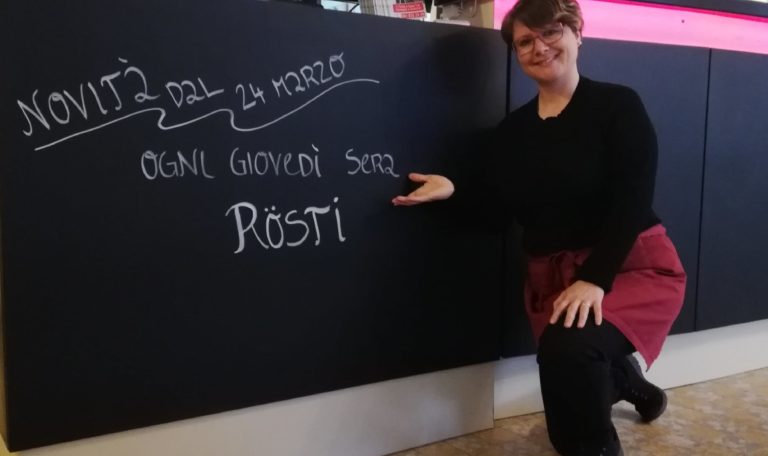 NOVITÀ DAL 24 MARZO
OGNI GIOVEDÌ SERA
RÖSTI